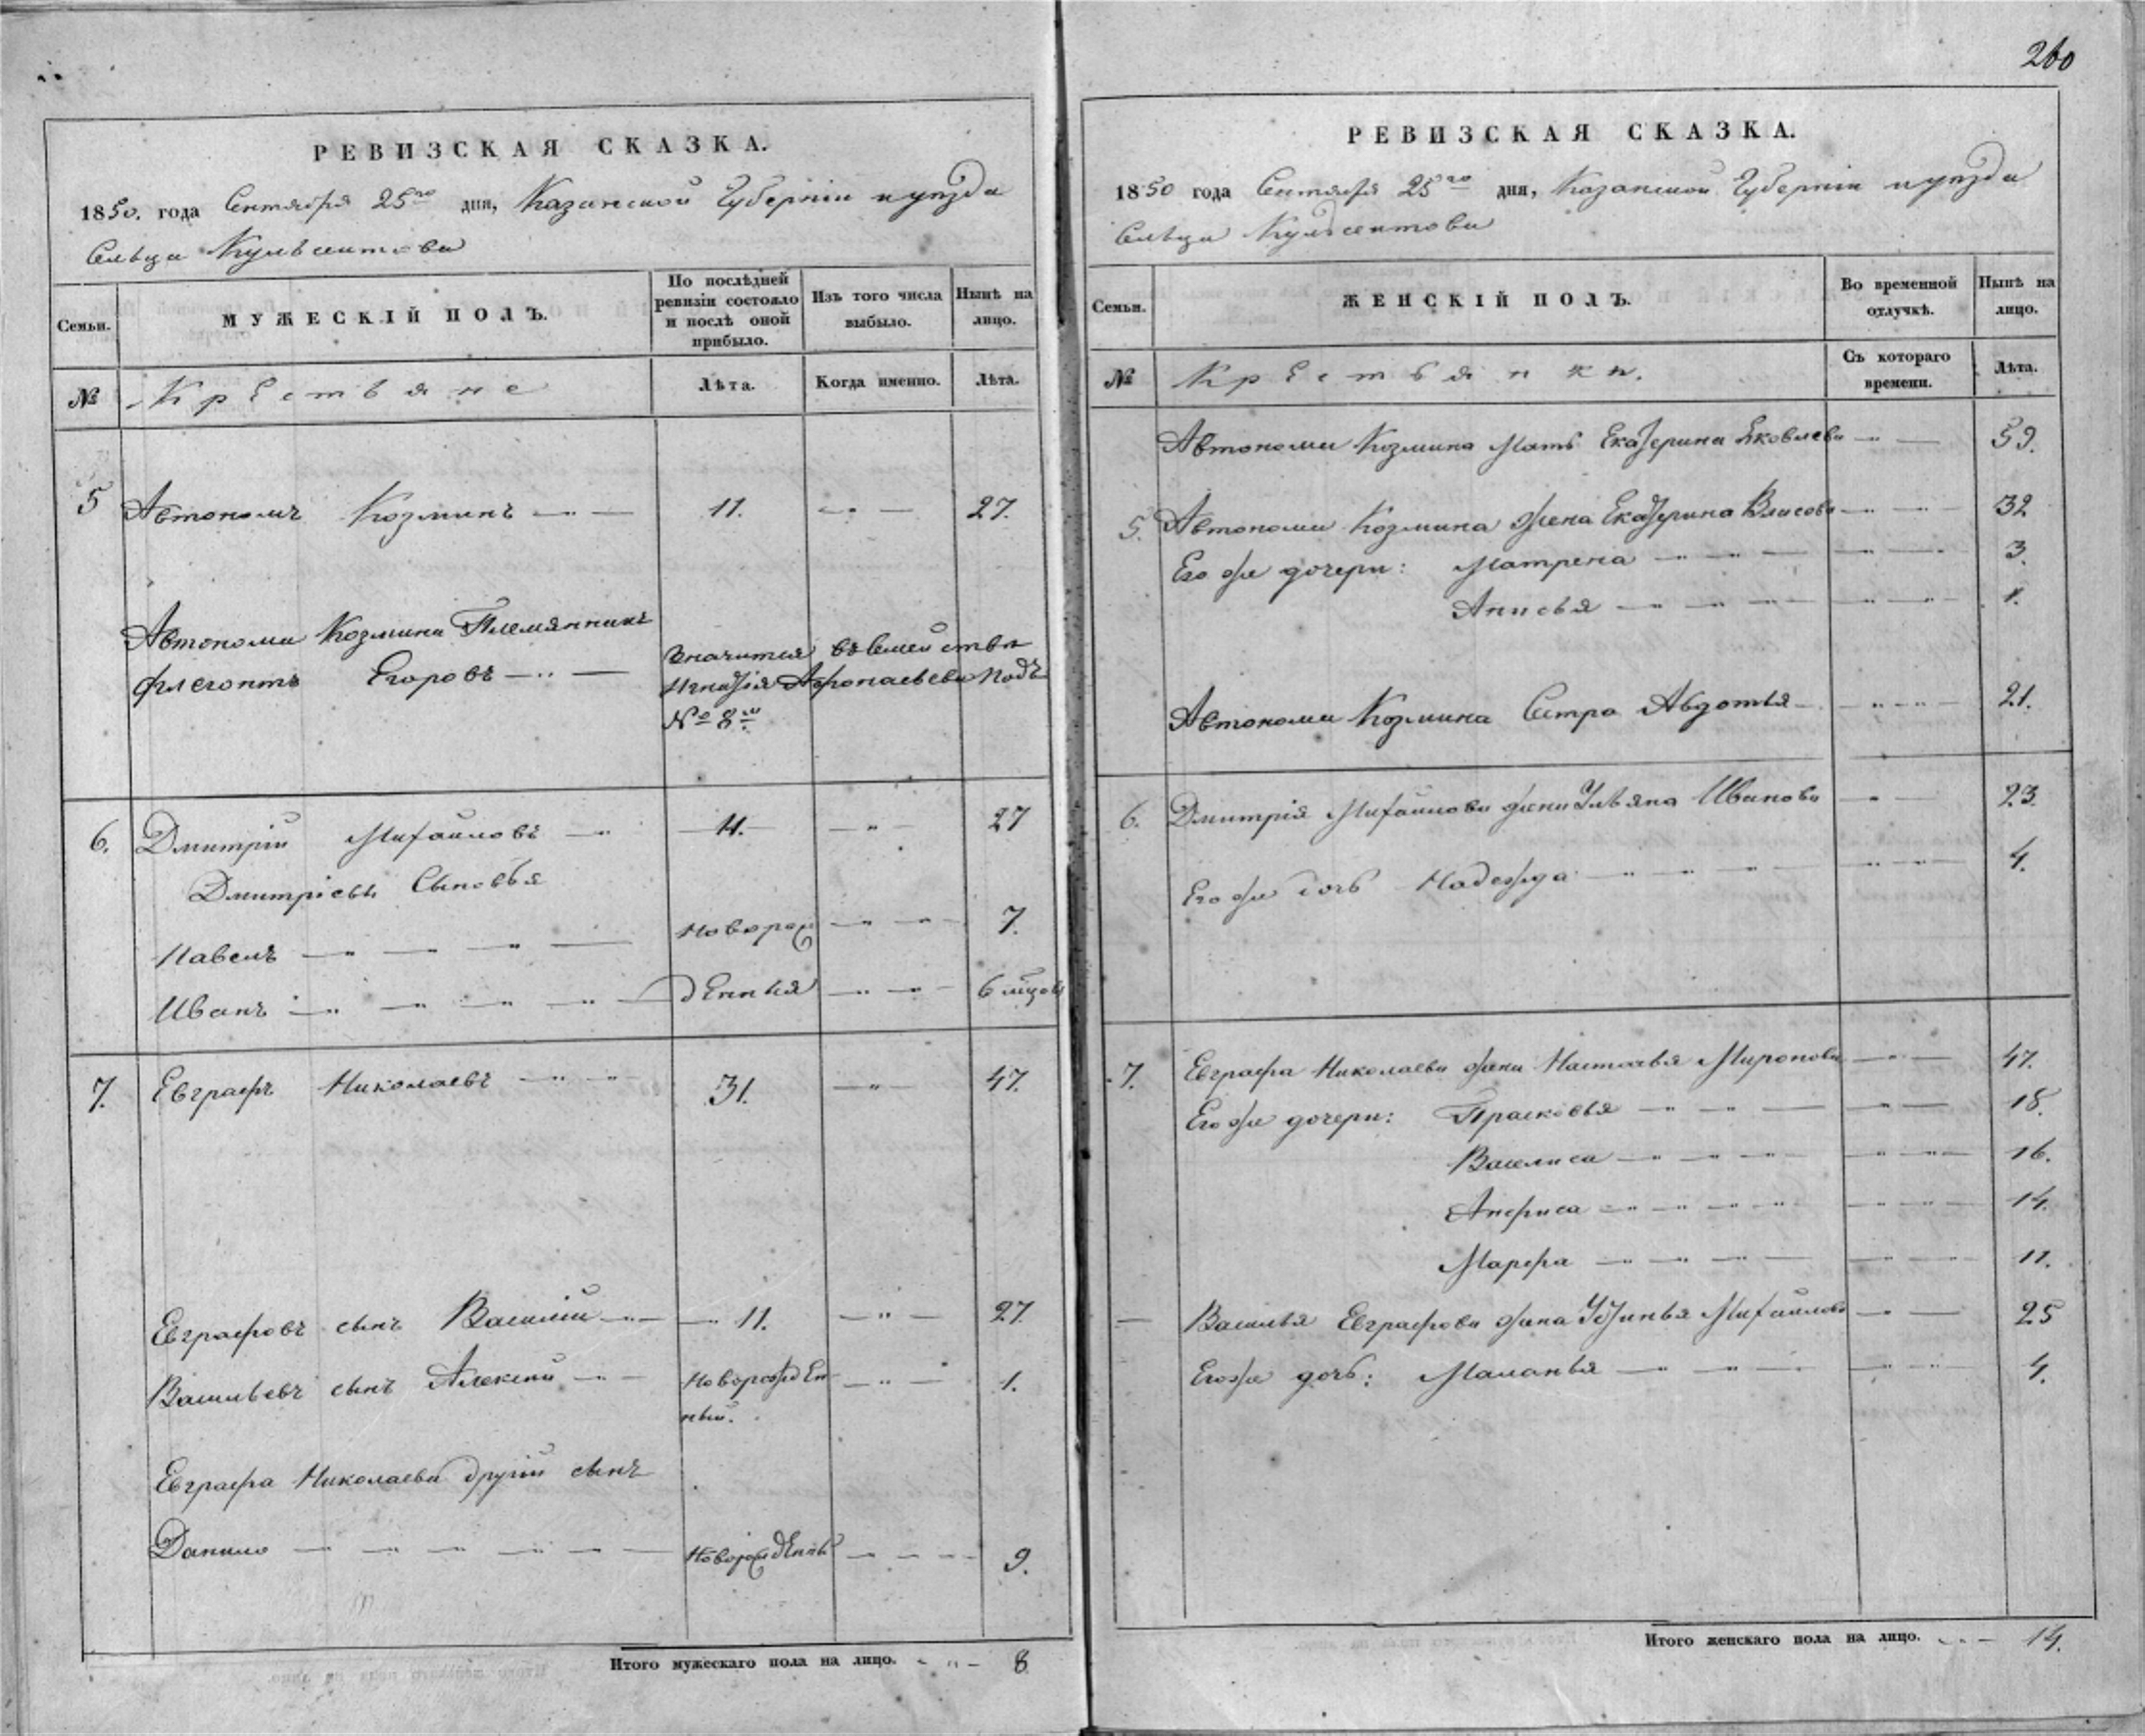 260
РЕВИЗСКАЯ СКАЗКА.
1850. года Сентября 25го дня, Казанской Губерніи и уѣзда
Сельца Кульсеитова
Семьи.
МУЖЕСКІЙ ПОЛЪ.
По послѣдней ревизіи состояло и послѣ оной прибыло.
Изъ того числа выбыло.
Нынѣ на лицо.
№
Крестьяне
Лѣта.
Когда именно.
Лѣта.
5 Автономъ Козминъ 11. 27.
Автонома Козмина Племянникъ
Флегонтъ Егоровъ
Значится въ Семействѣ
Игнатія Афонасьева подъ
№ 8м
6. Дмитрій Михайловъ 11. 27
Дмитріевы Сыновья
Павелъ Новорож 7.
Иванъ денныя 6 мѣцовъ
7. Евграфъ Николаевъ 31. 47.
Евграфовъ сынъ Василій 11. 27.
Васильевъ сынъ Алексій Новорожден 1.
ный.
Евграфа Николаева другій сынъ
Данило Новорожденый 9.
Итого мужескаго пола на лицо. 8
РЕВИЗСКАЯ СКАЗКА.
1850 года Сентября 25го дня, Казанской Губерніи и уѣзда
Сельца Кульсеитова
Семьи.
ЖЕНСКІЙ ПОЛЪ.
Во временной отлучкѣ.
Нынѣ на лицо.
№
Крестьянки.
Съ котораго времени.
Лѣта.
Автонома Козмина Мать Екатерина Яковлева 59.
5. Автонома Козмина жена Екатерина Власова 32
Его же дочери: Матрена 3.
Анисья 1.
Автонома Козмина Сестра Авдотья 21.
6. Дмитрія Михайлова жена Ульяна Иванова 23.
Его же дочь Надежда 4.
7. Евграфа Николаева жена Настасья Миронова 47.
Его же дочери: Прасковья 18.
Василиса 16.
Анфиса 14.
Марфа 11.
Василья Евграфова жена Устинья Михайлова 25
Его же дочь: Маланья 4.
Итого женскаго пола на лицо. 14.